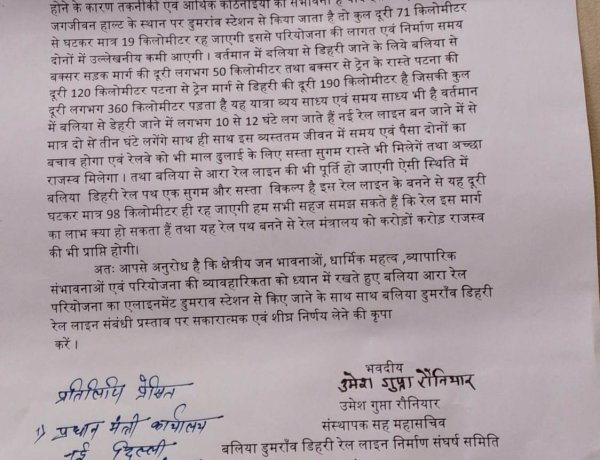 होने के कारण तकनीकी एवं आर्थिक कठिनाइयों की संभावना है
जगजीवन हाल्ट के स्थान पर डुमरांव स्टेशन से किया जाता है तो कुल दूरी 71 किलोमीटर
से घटकर मात्र 19 किलोमीटर रह जाएगी इससे परियोजना की लागत एवं निर्माण समय
दोनों में उल्लेखनीय कमी आएगी । वर्तमान में बलिया से डिहरी जाने के लिये बलिया से
बक्सर सड़क मार्ग की दूरी लगभग 50 किलोमीटर तथा बक्सर से ट्रेन के रास्ते पटना की
दूरी 120 किलोमीटर पटना से ट्रेन मार्ग से डिहरी की दूरी 190 किलोमीटर है जिसकी कुल
दूरी लगभग 360 किलोमीटर पड़ता है यह यात्रा व्यय साध्य एवं समय साध्य भी है वर्तमान
में बलिया से डेहरी जाने में लगभग 10 से 12 घंटे लग जाते हैं नई रेल लाइन बन जाने में से
मात्र दो से तीन घंटे लगेंगे साथ ही साथ इस व्यस्ततम जीवन में समय एवं पैसा दोनों का
बचाव होगा एवं रेलवे को भी माल ढुलाई के लिए सस्ता सुगम रास्ते भी मिलेगें तथा अच्छा
राजस्व मिलेगा । तथा बलिया से आरा रेल लाइन की भी पूर्ति हो जाएगी ऐसी स्थिति में
बलिया डिहरी रेल पथ एक सुगम और सस्ता विकल्प है इस रेल लाइन के बनने से यह दूरी
घटकर मात्र 98 किलोमीटर ही रह जाएगी हम सभी सहज समझ सकते हैं कि रेल इस मार्ग
का लाभ क्या हो सकता हैं तथा यह रेल पथ बनने से रेल मंत्रालय को करोड़ों करोड़ राजस्व
की भी प्राप्ति होगी।
अतः आपसे अनुरोध है कि क्षेत्रीय जन भावनाओं, धार्मिक महत्व ,व्यापारिक
संभावनाओं एवं परियोजना की व्यावहारिकता को ध्यान में रखते हुए बलिया आरा रेल
परियोजना का एलाइनमेंट डुमराव स्टेशन से किए जाने के साथ साथ बलिया डुमराँव डिहरी
रेल लाइन संबंधी प्रस्ताव पर सकारात्मक एवं शीघ्र निर्णय लेने की कृपा
करें ।
भवदीय
उमेश गुप्ता रौनियार
उमेश गुप्ता रौनियार
संस्थापक सह महासचिव
बलिया डुमराँव डिहरी रेल लाइन निर्माण संघर्ष समिति
प्रतिलिपि प्रेषित
1) प्रधान मंत्री कार्यालय
नई दिल्ली